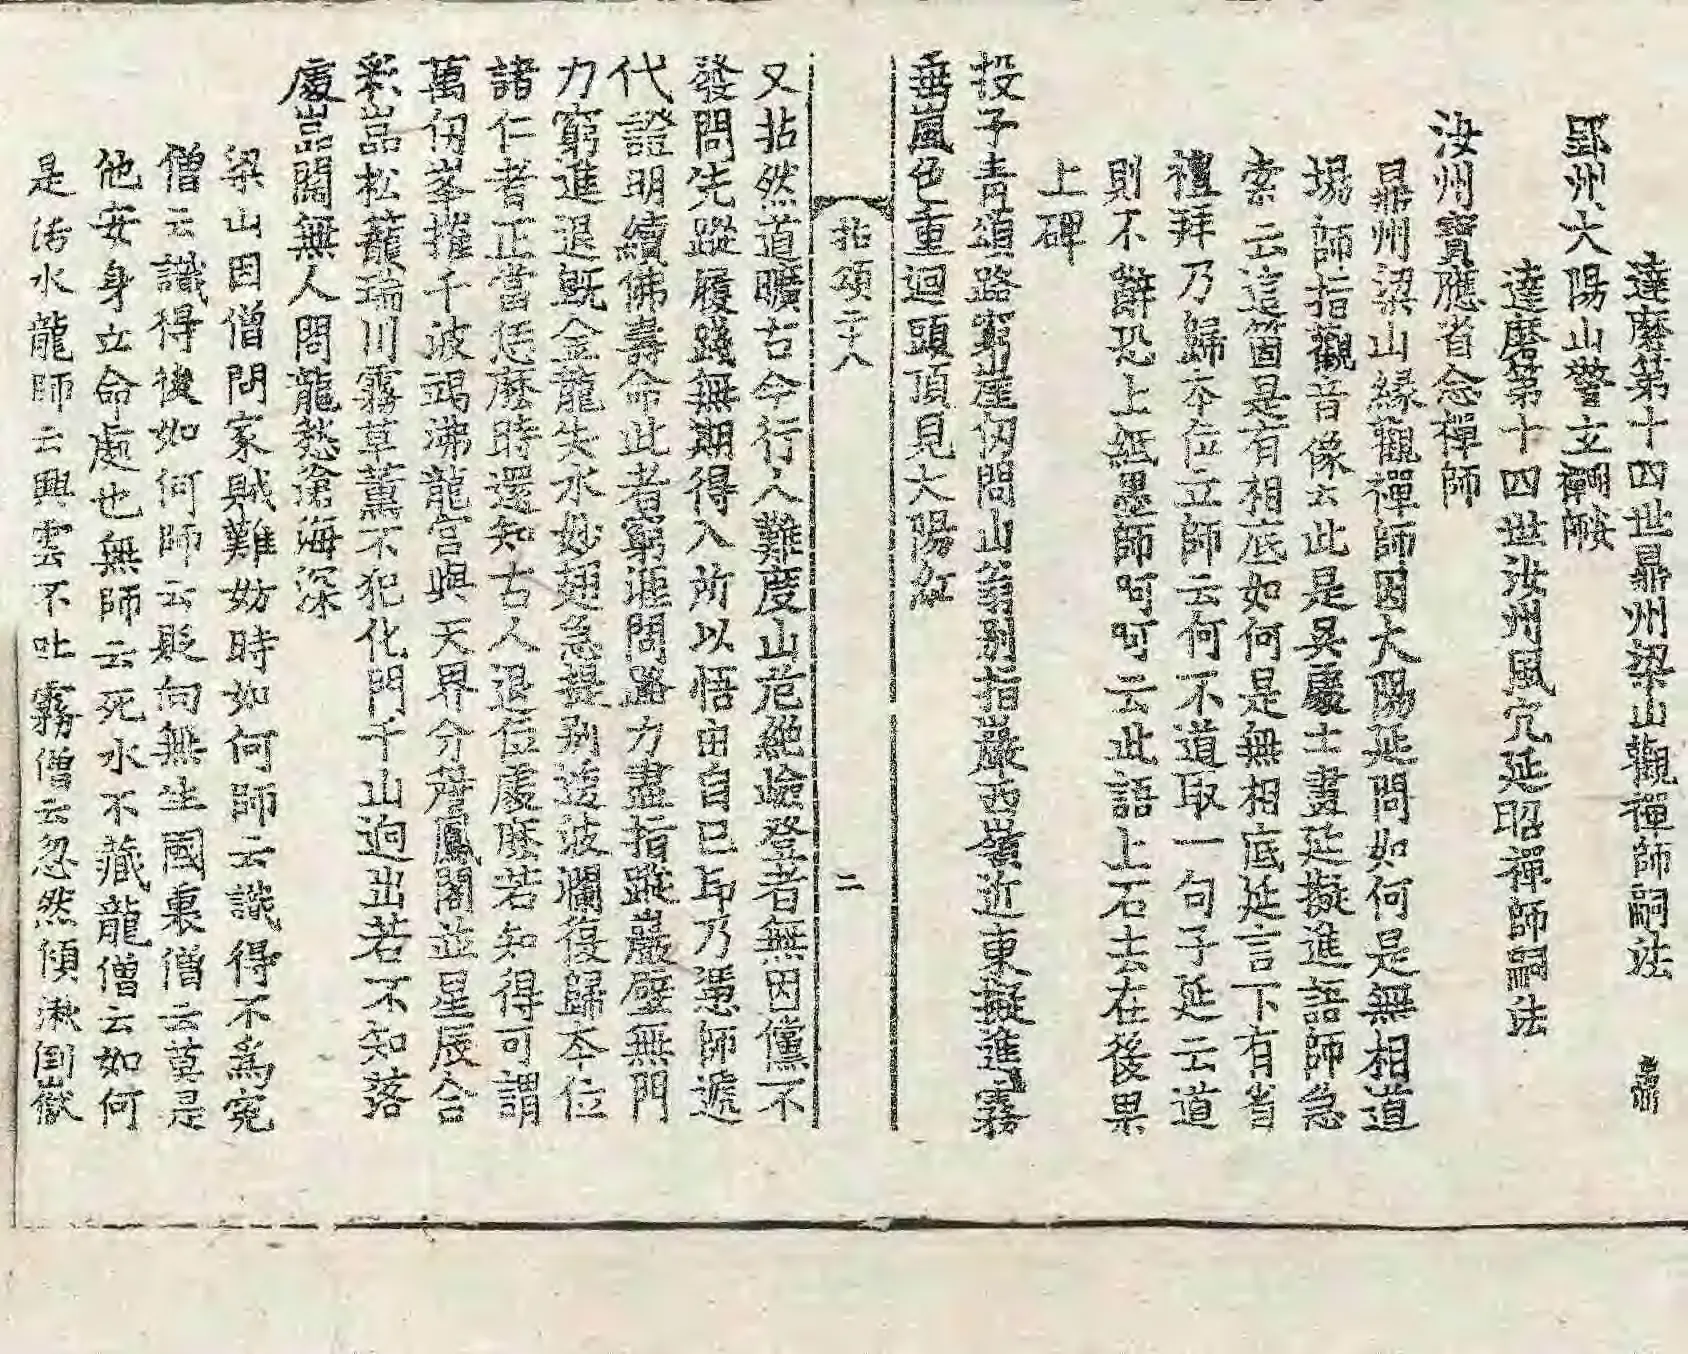 達磨第十四世鼎州梁山觀禪師嗣法
郢州大陽山警玄禪師
達磨第十四世汝州風穴延昭禪師嗣法
汝州寶應省念禪師
鼎州梁山緣觀禪師因大陽延問如何是無相道
場師指觀音像云此是吳處士畫延擬進語師急
索云這箇是有相底如何是無相底延言下有省
禮拜乃歸本位立師云何不道取一句子延云道
則不辭恐上紙墨師呵呵云此語上石去在後果
上碑
投子青頌路窮崖仞問山翁別指巖西嶺近東擬進霧
垂嵐色重迴頭頂見大陽紅
拈頌二十八
二
又拈然道曠古今行人難度山危絶嶮登者無因儻不
發問先蹤履踐無期得入所以悟由自己印乃憑師遞
代證明續佛壽命此者窮進問路力盡指蹤巖壁無門
力窮進退旣金龍失水妙翅急提別透波瀾復歸本位
諸仁者正當恁麽時還知古人退位處麽若知得可謂
萬仞峯摧千波竭沸龍宮與天界分 鳳閣並星辰合
彩嵒松蘢瑞川霧草薰不犯化門千山逈出若不知落
處嵒闊無人問龍愁滄海深
梁山因僧問家賊難妨時如何師云識得不爲寃
僧云識得後如何師云貶向無生國裏僧云莫是
他安身立命處也無師云死水不藏龍僧云如何
是活水龍師云興雲不吐霧僧云忽然傾湫倒嶽